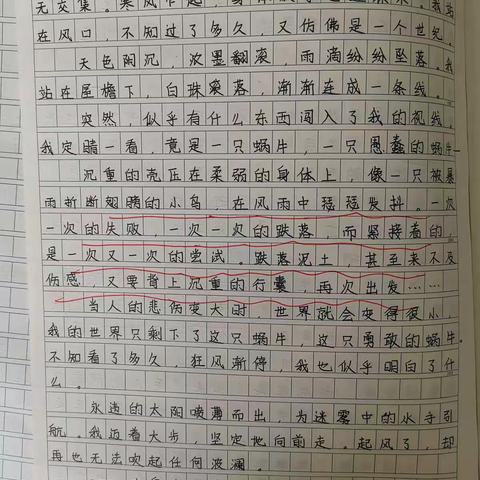 无交集。寒风乍起,
在风口,不知过了多久,又仿佛是一个世纪。
天色阴沉,浓墨翻滚,雨滴纷纷坠落。我
站在屋檐下,白珠滚落,渐渐连成一条线。
突然,似乎有什么东西闯入了我的视线。
我定睛一看,竟是一只蜗牛,一只愚蠢的蜗牛。
沉重的壳压在柔弱的身体上,像一只被暴
雨折断翅膀的小鸟,在风雨中瑟瑟发抖。一次
一次的失败,一次一次的跌落,而紧接着的,
是一次又一次的尝试。跌落泥土,甚至来不及
伤感,又要背上沉重的行囊,再次出发……
当人的悲伤变大时,世界就会变得很小,
我的世界只剩下了这只蜗牛,这只勇敢的蜗牛。
不知看了多久,狂风渐停,我也似乎明白了什
么。
永远的太阳喷薄而出,为迷雾中的水手引
航。我迈着大步,坚定地向前走。起风了,却
再也无法吹起任何波澜。